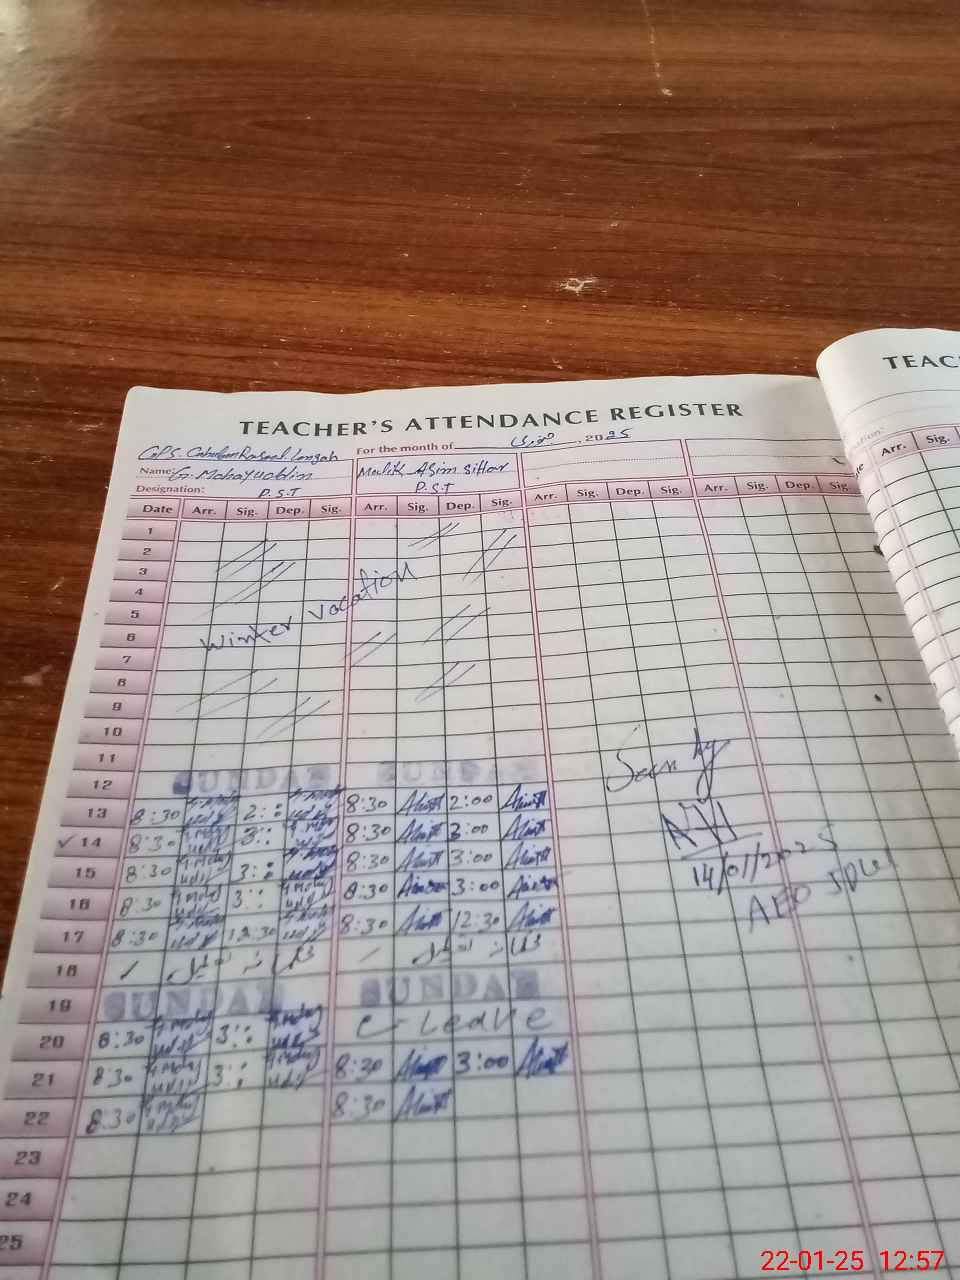 TEACHER'S ATTENDANCE REGISTER
TEAC
For the month of جنوری, 2025
Name: G. Mohayuddin
Malik Asim Sittar
Designation: P.S.T
P.S.T
Date Arr. Sig. Dep. Sig. Arr. Sig. Dep. Sig. Arr. Sig. Dep. Sig. Arr. Sig. Dep. Sig.
Arr. Sig.
1
2
3
4
5
Winter vacation
6
7
8
9
10
11
Seen by
12 SUNDAY SUNDAY
13 8:30 2:: 8:30 2:00
✓ 14 8:30 3:: 8:30 3:00
14/01/2025
15 8:30 3:: 8:30 3:00
AEO
16 8:30 3:: 8:30 3:00
17 8:30 12:30 8:30 12:30
18
19 SUNDAY SUNDAY
20 8:30 3:: C-Leave
21 8:30 3:: 8:30 3:00
22 8:30 8:30
23
24
25
22-01-25 12:57